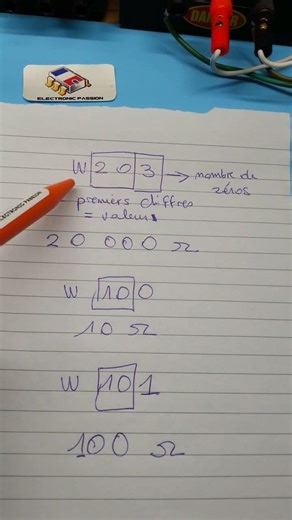 DANGER
ELECTRONIC PASSION
W 203 → nombre de zéros
premiers chiffres
= valeurs
20 000 Ω
W 100
10 Ω
W 101
100 Ω